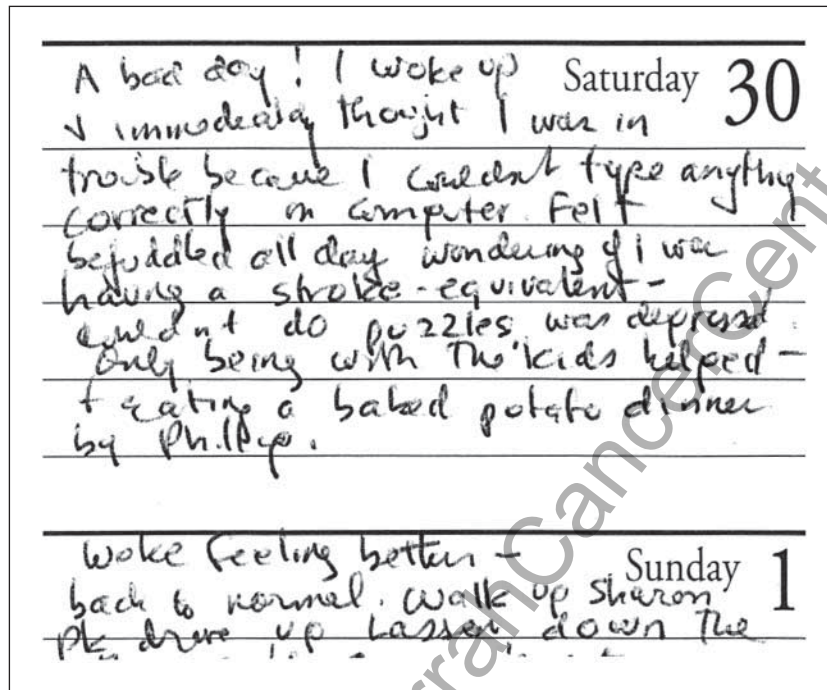 A bad day! I woke up Saturday 30
+ immediately thought I was in
trouble because I couldn't type anything
correctly on computer. Felt
befuddled all day wondering if I was
having a stroke-equivalent-
couldn't do puzzles was depressed.
Only being with the kids helped-
+ eating a baked potato dinner
by Phillip.
Woke feeling better -
Sunday 1
back to normal. Walk up sharon
pk drive up Lassen down the
rrahCancerCent